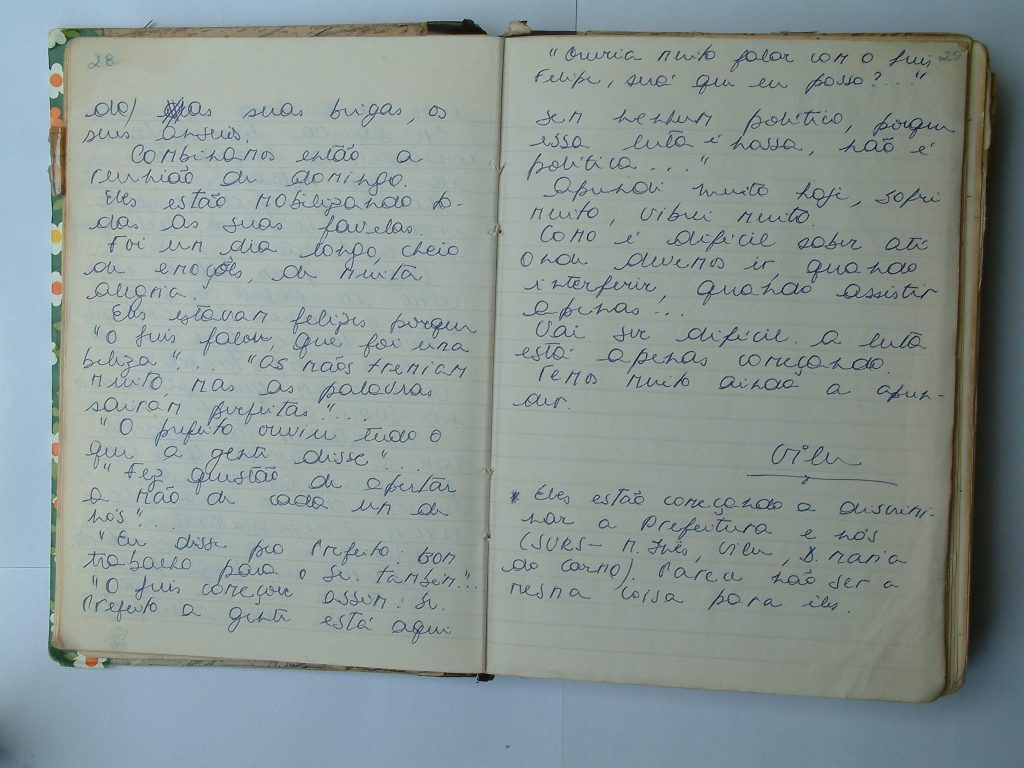 28
do) as suas brigas, os
seus anseios.
Combinamos então a
reunião de domingo.
Eles estão mobilizando to-
das as suas favelas.
Foi um dia longo, cheio
de emoções, de muita
alegria.
Eles estavam felizes porque
"O Luis falou, que foi uma
beleza"... "As mãos tremiam
muito mas as palavras
sairam perfeitas"...
"O prefeito ouviu tudo o
que a gente disse"...
"Fez questão de apertar
a mão de cada um de
nós"...
"Eu disse pro Prefeito: Bom
trabalho para o Sr. também"...
"O Luis começou assim: Sr.
Prefeito a gente está aqui
29
"Queria muito falar com o Luis
Felipe, será que eu posso?..."
sem nenhum político, porque
essa luta é nossa, não é
política..."
Aprendi muito hoje, sofri
muito, vibrei muito.
Como é difícil saber até
onde devemos ir, quando
interferir, quando assistir
apenas...
Vai ser difícil. A luta
está apenas começando.
Temos muito ainda a apren-
der.
Vileu
* Eles estão começando a discrimi-
nar a Prefeitura e nós
(SURS - M. Inês, Vileu, D. Maria
do Carmo). Parece não ser a
mesma coisa para eles.